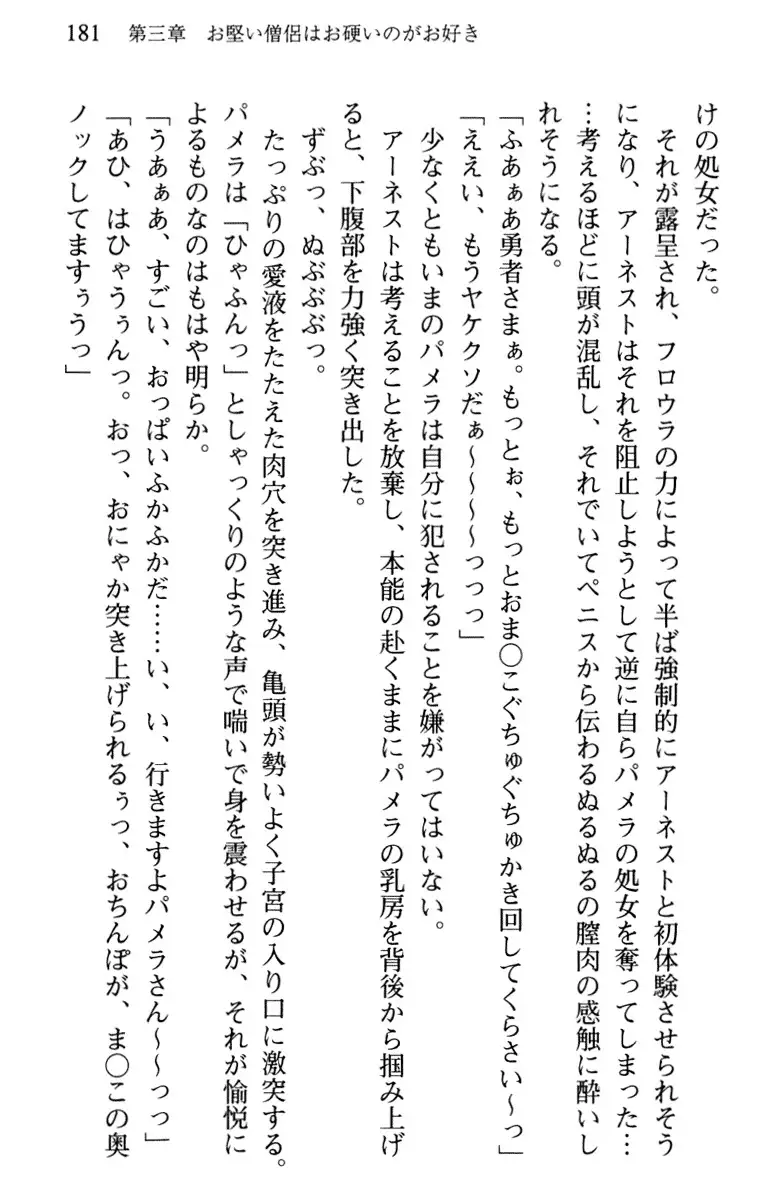 181 第三章 お堅い僧侶はお硬いのがお好き
けの処女だった。
それが露呈され、フロウラの力によって半ば強制的にアーネストと初体験させられそう
になり、アーネストはそれを阻止しようとして逆に自らパメラの処女を奪ってしまった…
…考えるほどに頭が混乱し、それでいてペニスから伝わるぬるぬるの膣肉の感触に酔いし
れそうになる。
「ふあぁあ勇者さまぁ。もっとぉ、もっとおま〇こぐちゅぐちゅかき回してくらさい〜っ」
「ええい、もうヤケクソだぁ〜〜〜〜っっっ」
少なくともいまのパメラは自分に犯されることを嫌がってはいない。
アーネストは考えることを放棄し、本能の赴くままにパメラの乳房を背後から掴み上げ
ると、下腹部を力強く突き出した。
ずぶっ、ぬぶぶぶっ。
たっぷりの愛液をたたえた肉穴を突き進み、亀頭が勢いよく子宮の入り口に激突する。
パメラは「ひゃふんっ」としゃっくりのような声で喘いで身を震わせるが、それが愉悦に
よるものなのはもはや明らか。
「うあぁあ、すごい、おっぱいふかふかだ……い、い、行きますよパメラさん〜〜っっ」
「あひ、はひゃうぅんっ。おっ、おにゃか突き上げられるぅっ、おちんぽが、ま〇この奥
ノックしてますぅうっ」